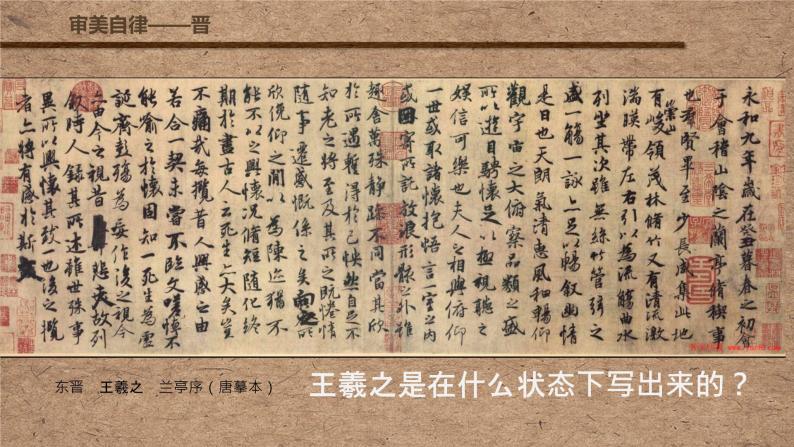 审美自律——晋
永和九年歲在癸丑暮春之初會
于會稽山陰之蘭亭脩稧事
也羣賢畢至少長咸集此地
有崇山峻領茂林脩竹又有清流激
湍暎帶左右引以為流觴曲水
列坐其次雖無絲竹管弦之
盛一觴一詠亦足以暢敘幽情
是日也天朗氣清惠風和暢仰
觀宇宙之大俯察品類之盛
所以遊目騁懷足以極視聽之
娛信可樂也夫人之相與俯仰
一世或取諸懷抱悟言一室之內
或因寄所託放浪形骸之外雖
趣舍萬殊靜躁不同當其欣
於所遇暫得於己怏然自足不
知老之將至及其所之既惓情
隨事遷感慨係之矣向之所
欣俛仰之間以為陳迹猶不
能不以之興懷況脩短隨化終
期於盡古人云死生亦大矣豈
不痛哉每攬昔人興感之由
若合一契未嘗不臨文嗟悼不
能喻之於懷固知一死生為虛
誕齊彭殤為妄作後之視今
亦由今之視昔悲夫故列
敘時人錄其所述雖世殊事
異所以興懷其致一也後之攬
者亦將有感於斯文
东晋 王羲之 兰亭序（唐摹本）
王羲之是在什么状态下写出来的？